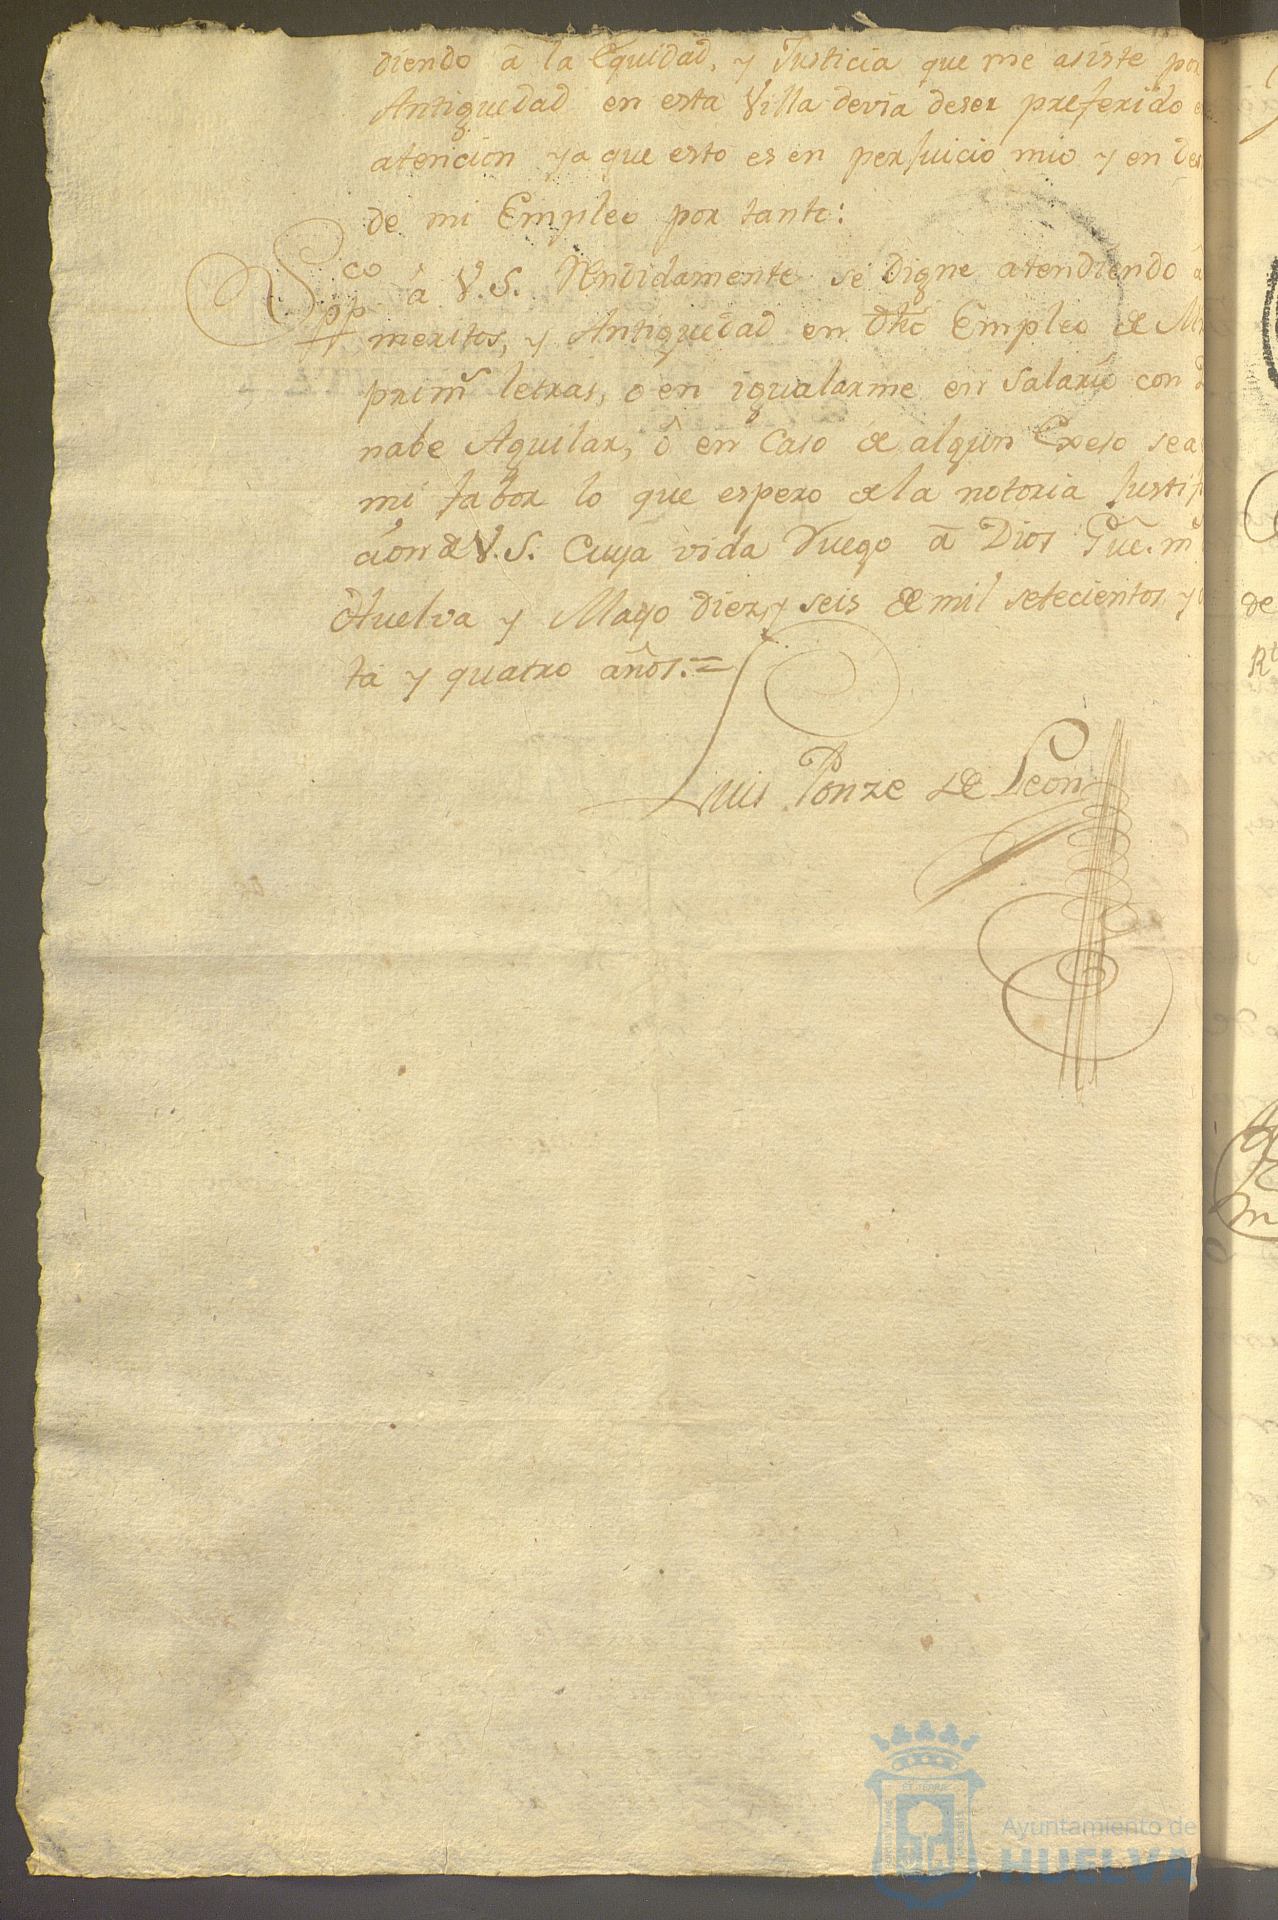 diendo â la Equidad, y Justicia que me asiste por
Antiguedad en esta Villa devia deser preferido
atencion ya que esto es en perjuicio mio y en
de mi Empleo por tanto:
Sppco â V.S. Rendidamente se digne atendiendo â
meritos, y Antiguedad en dho Empleo de
prim.s letras, o en igualarme en Salario con
nabe Aguilar, ô en Caso de algun Exeso sea
mi fabor lo que espero de la notoria Justifi
cion de V.S. Cuya vida Ruego â Dios Gue. m
Huelva y Mayo diez y seis de mil setecientos y
ta y quatro años.=
Luis Ponze de Leon
Ayuntamiento de
HUELVA